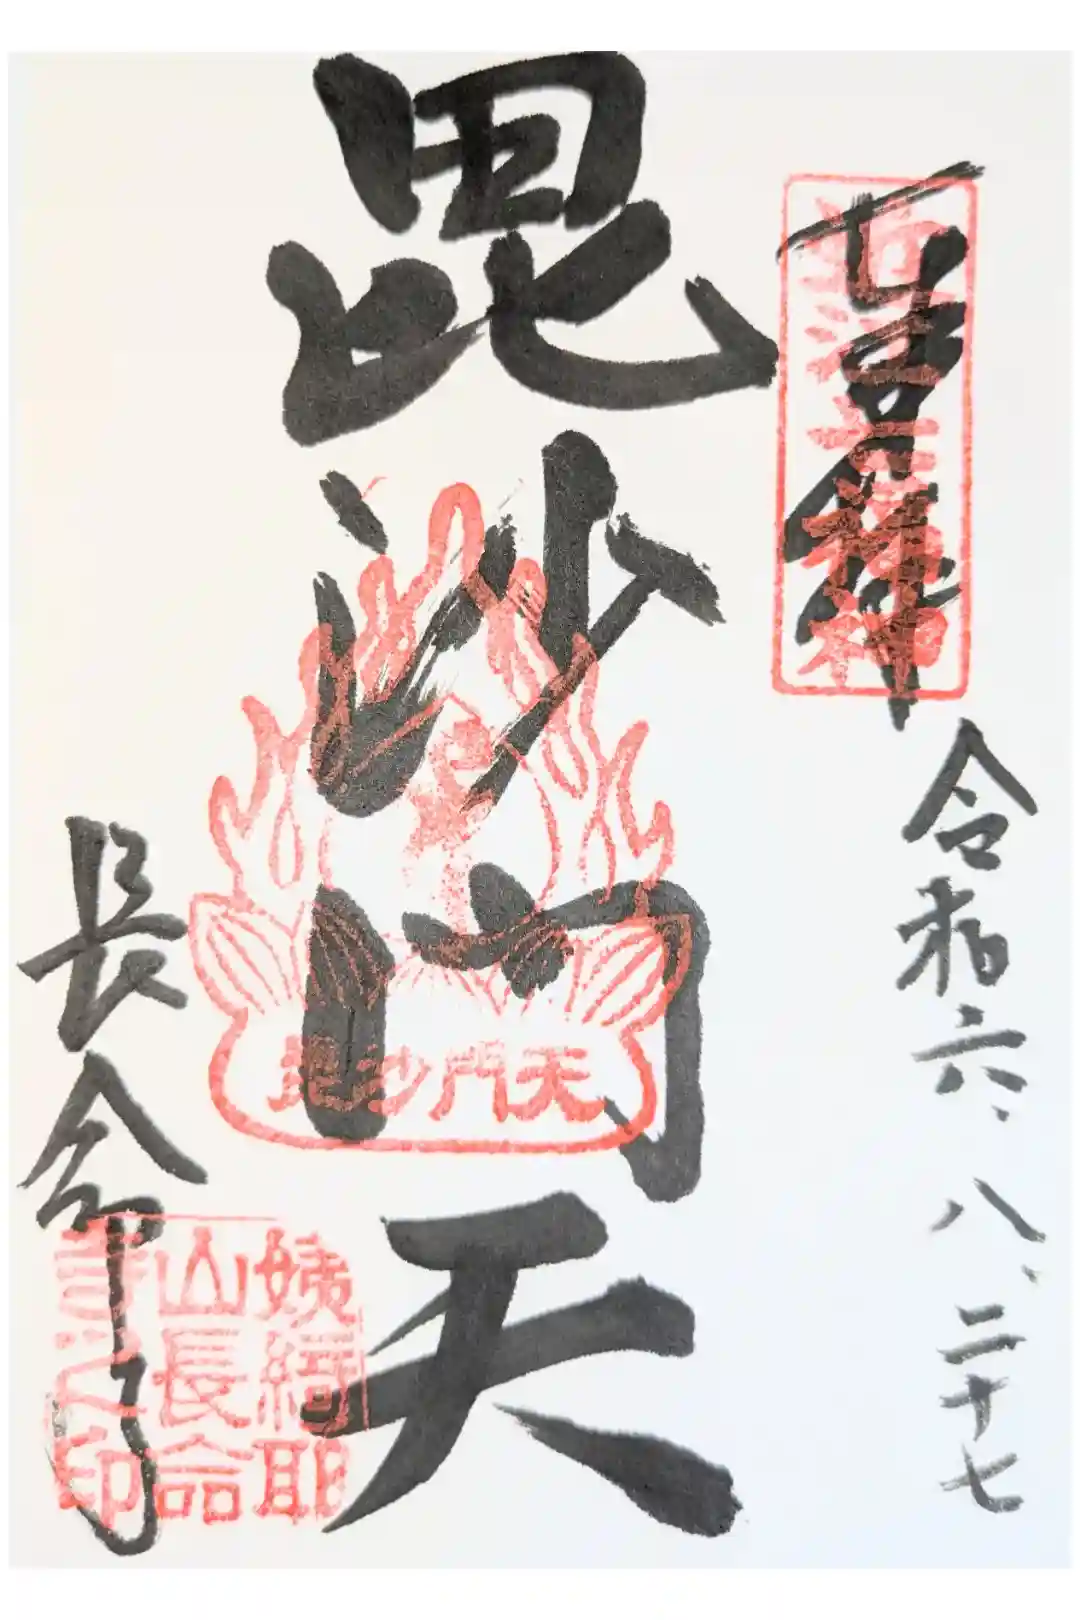 近江七福神
令和六、八、二十七
毘沙門天
毘沙門天
長命寺
姨綺耶
山長命
寺之印